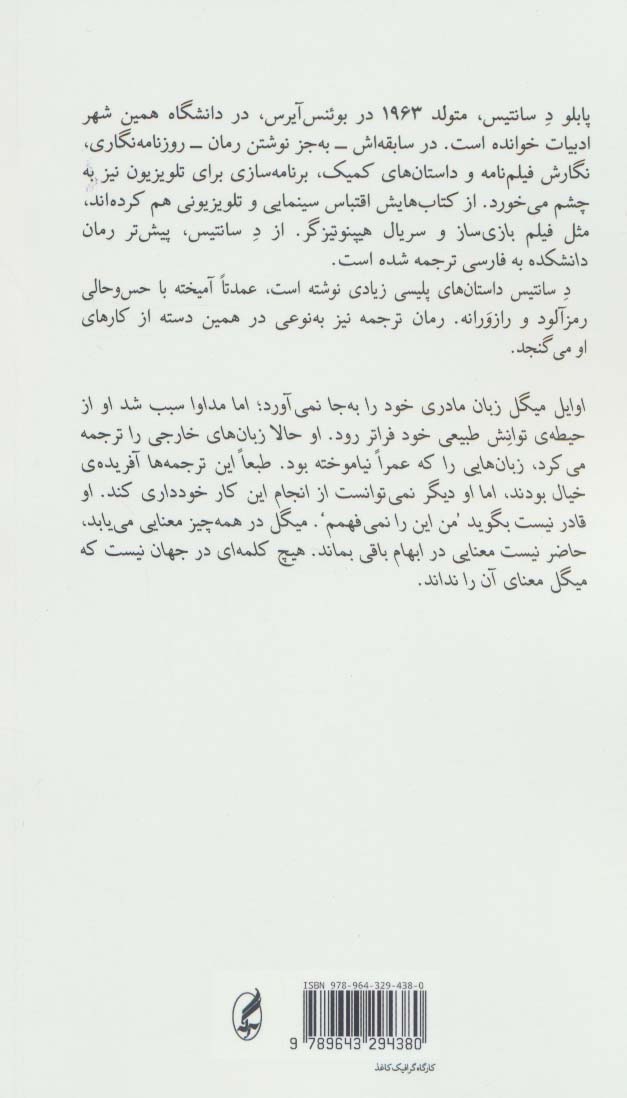 پابلو دِ سانتیس، متولد ۱۹۶۳ در بوئنس‌آیرس، در دانشگاه همین شهر
ادبیات خوانده است. در سابقه‌اش ــ به‌جز نوشتن رمان ــ روزنامه‌نگاری،
نگارش فیلم‌نامه و داستان‌های کمیک، برنامه‌سازی برای تلویزیون نیز به
چشم می‌خورد. از کتاب‌هایش اقتباس سینمایی و تلویزیونی هم کرده‌اند،
مثل فیلم بازی‌ساز و سریال هیپنوتیزگر. از دِ سانتیس، پیش‌تر رمان
دانشکده به فارسی ترجمه شده است.
دِ سانتیس داستان‌های پلیسی زیادی نوشته است، عمدتاً آمیخته با حس‌وحالی
رمزآلود و رازوَرانه. رمان ترجمه نیز به‌نوعی در همین دسته از کارهای
او می‌گنجد.
اوایل میگل زبان مادری خود را به‌جا نمی‌آورد؛ اما مداوا سبب شد او از
حیطه‌ی توانِش طبیعی خود فراتر رود. او حالا زبان‌های خارجی را ترجمه
می‌کرد، زبان‌هایی را که عمراً نیاموخته بود. طبعاً این ترجمه‌ها آفریده‌ی
خیال بودند، اما او دیگر نمی‌توانست از انجام این کار خودداری کند. او
قادر نیست بگوید ’من این را نمی‌فهمم‘. میگل در همه‌چیز معنایی می‌یابد،
حاضر نیست معنایی در ابهام باقی بماند. هیچ کلمه‌ای در جهان نیست که
میگل معنای آن را نداند.
ISBN 978-964-329-438-0
9 789643 294380
کارگاه گرافیک کاغذ